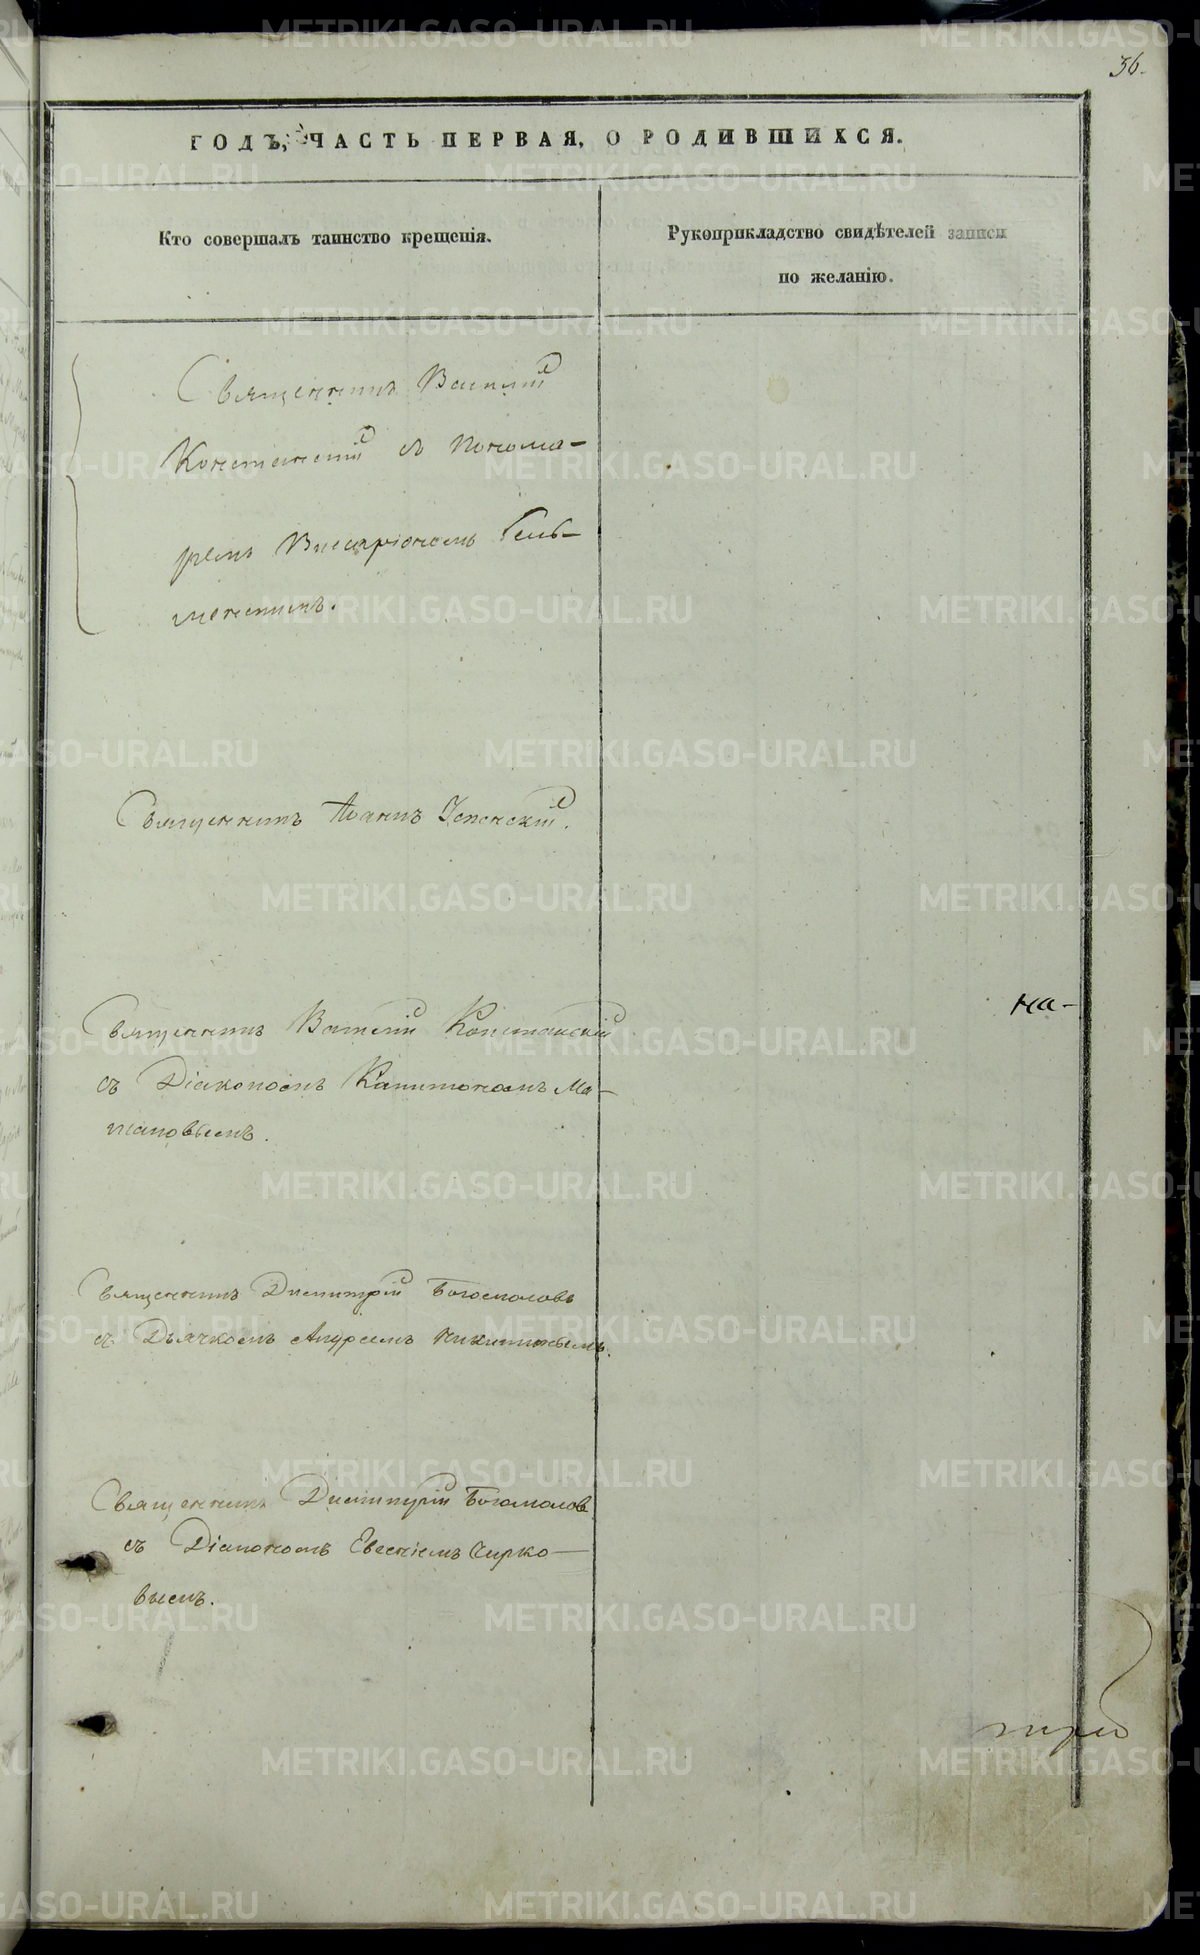 36.
ГОДЪ, ЧАСТЬ ПЕРВАЯ, О РОДИВШИХСЯ.
Кто совершалъ таинство крещенія.
Рукоприкладство свидѣтелей записи
по желанію.
Священникъ Василій
Константскій съ понома-
ремъ Висаріономъ
Священникъ Іоаннъ Успенскій.
Священникъ Василій
съ Діакономъ Капитономъ Ма-
на-
Священникъ Димитрій Богомоловъ
съ Дьячкомъ Андреемъ Никитинымъ.
Священникъ Димитрій Богомолов
съ Діакономъ Евгеніемъ Чирко-
вымъ.
METRIKI.GASO-URAL.RU